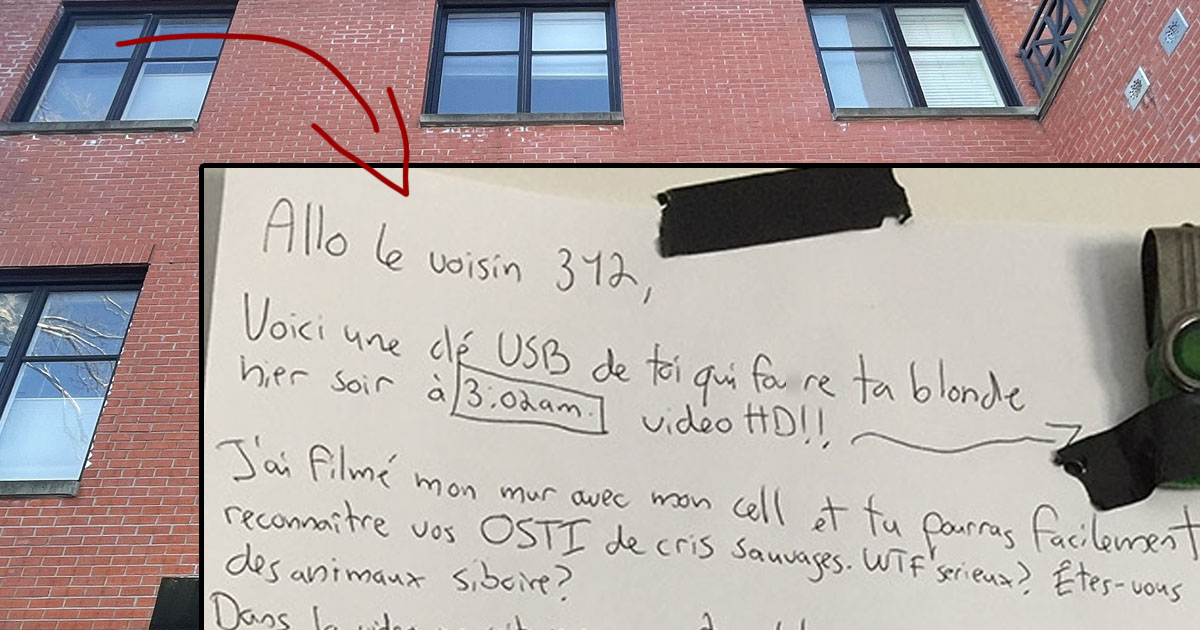 Allo le voisin 342,
Voici une clé USB de toi qui fourre ta blonde
hier soir à 3:02am. video HD!!
J'ai filmé mon mur avec mon cell et tu pourras facilement
reconnaître vos OSTI de cris sauvages. WTF serieux? Êtes-vous
des animaux siboire?
Dans la video